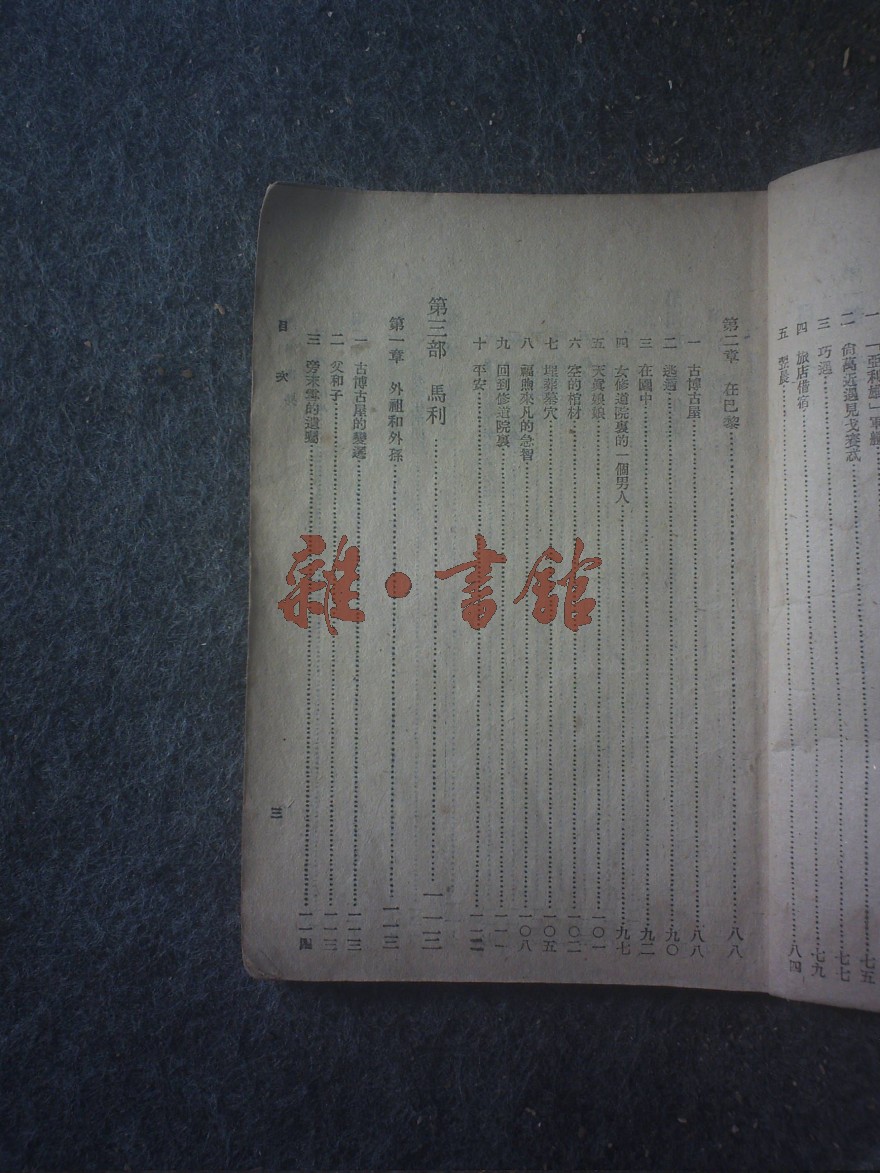 一 「亞利雄」軍艦 七五
二 尙萬近遇見戈賽忒 七七
三 巧遇 七九
四 旅店借宿 八四
五 翌晨
第二章 在巴黎 八八
一 古博古屋 八八
二 逃遁 九〇
三 在園中 九二
四 女修道院裏的一個男人 九七
五 天黃娘娘 一〇一
六 空的棺材 一〇二
七 埋葬墓穴 一〇五
八 福煦來凡的急智 一〇八
九 回到修道院裏 一一一
十 平安 一一二
第三部 馬利 一一三
第一章 外祖和外孫 一一三
一 古博古屋的變遷 一一三
二 父和子 一一三
三 旁末雲的遺囑 一一四
目次
三
雜·書館